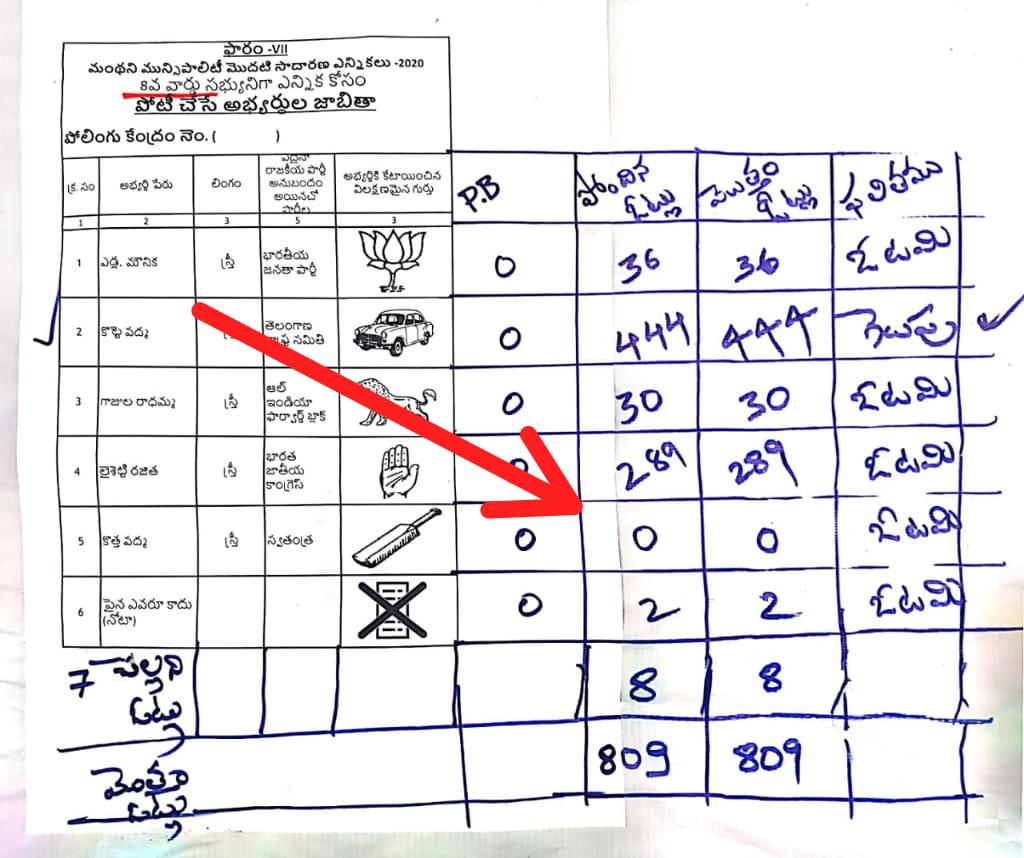 ఫారం -VII
మంథని మున్సిపాలిటీ మొదటి సాదారణ ఎన్నికలు -2020
8వ వార్డు సభ్యునిగా ఎన్నిక కోసం
పోటీ చేసే అభ్యర్థుల జాబితా
పోలింగు కేంద్రం నెం. ( )
క్ర. సం అభ్యర్థి పేరు లింగం ఏదైనా రాజకీయ పార్టీ అనుబందం అయినచో పార్టీల అభ్యర్థికి కేటాయించిన విలక్షణమైన గుర్తు P.B పొందిన ఓట్లు మొత్తం ఓట్లు ఫలితము
1 2 3 5 3
1 ఎడ్ల. మౌనిక స్త్రీ భారతీయ జనతా పార్టీ 0 36 36 ఓటమి
2 కొట్టె పద్మ తెలంగాణ సమితి 0 444 444 గెలుపు
3 గాజుల రాధమ్మ స్త్రీ ఆల్ ఇండియా ఫార్వార్డ్ బ్లాక్ 0 30 30 ఓటమి
4 లైశెట్టి రజిత స్త్రీ భారత జాతీయ కాంగ్రెస్ 289 289 ఓటమి
5 కొత్త పద్మ స్త్రీ స్వతంత్ర 0 0 0 ఓటమి
6 పైన ఎవరూ కాదు (నోటా) 0 2 2 ఓటమి
7 చెల్లని ఓట్లు 8 8
మొత్తం ఓట్లు 809 809